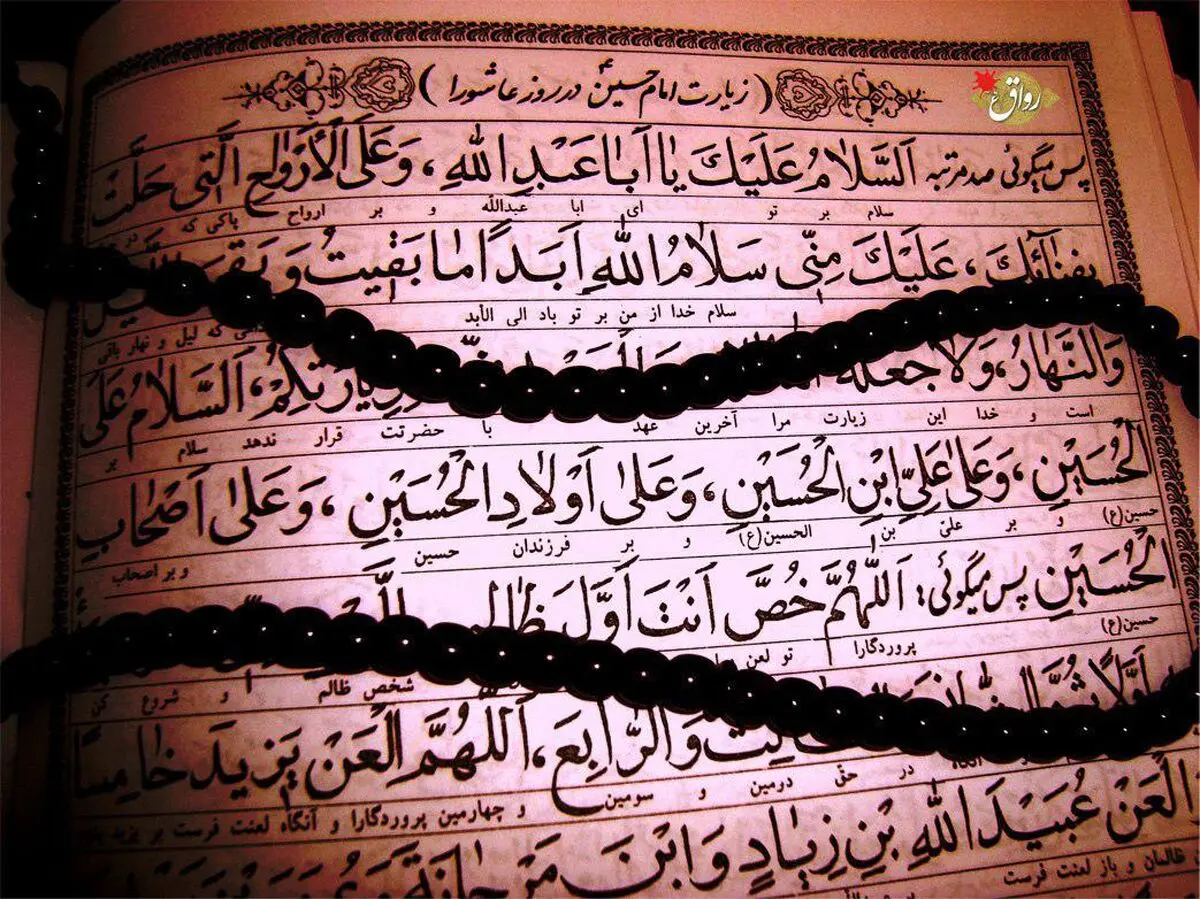 رواق
( زیارت امام حسین ع در روز عاشورا )
پس میگوئی صد مرتبه اَلسَّلامُ عَلَیْكَ یا اَبا عَبْدِ اللهِ ، وَعَلَى الْأَرْواحِ الَّتی حَلَّتْ
سلام بر تو ای ابا عبدالله و بر ارواح پاکی که در
بِفِنآئِكَ ، عَلَیْكَ مِنّی سَلامُ اللهِ اَبَدًا ما بَقیتُ وَ بَقِیَ
سلام خدا از من بر تو باد الی الأبد که لیل و نهار باقی
وَالنَّهارُ، وَلا جَعَلَهُ زِیارَتِکُمْ، اَلسَّلامُ عَلَى
است و خدا این زیارت مرا آخرین عهد با حضرتت قرار ندهد سلام بر
الْحُسَیْنِ ، وَعَلى عَلِیِّ ابْنِ الْحُسَیْنِ ، وَعَلى اَوْلادِ الْحُسَیْنِ ، وَعَلى اَصْحابِ
حسین(ع) و بر علیّ بن الحسین(ع) و بر فرزندان حسین و بر اصحاب
الْحُسَیْنِ پس میگوئی: اَللّهُمَّ خُصَّ اَنْتَ اَوَّلَ ظالِمٍ
حسین(ع) پروردگارا تو لعن
اَوَّلًا ثُمَّ
شخص ظالم و شروع کن
وَالرّابِعَ ، اَللّهُمَّ الْعَنْ یَزیدَ خامِسًا
در حقّ دومین و سومین و چهارمین پروردگارا و آنگاه لعنت فرست بر یزید
الْعَنْ عُبَیْدَ اللهِ بْنِ زِیادٍ وَ ابْنَ مَرْجانَةَ
ظالمان و باز لعنت فرست